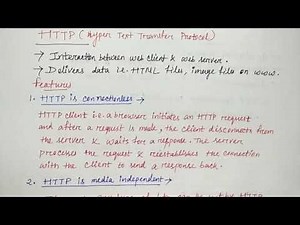 HTTP (Hyper Text Transfer Protocol)
→ Interaction between web client & web server.
→ Delivers data i.e. HTML files, image files on WWW.
Features
1. HTTP is connectionless →
HTTP client i.e. a browser initiates an HTTP request
and after a request is made, the client disconnects from
the server & waits for a response. The server
processes the request & reestablishes the connection
with the client to send a response back.
2. HTTP is media independent →
HTTP